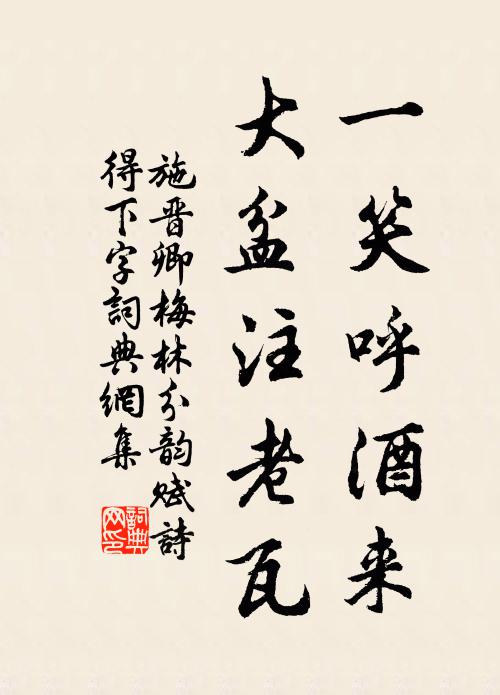 一笑呼酒来
大盆注老瓦
施晋卿梅林分韵赋詩
得下字詞典網集
詞典网印